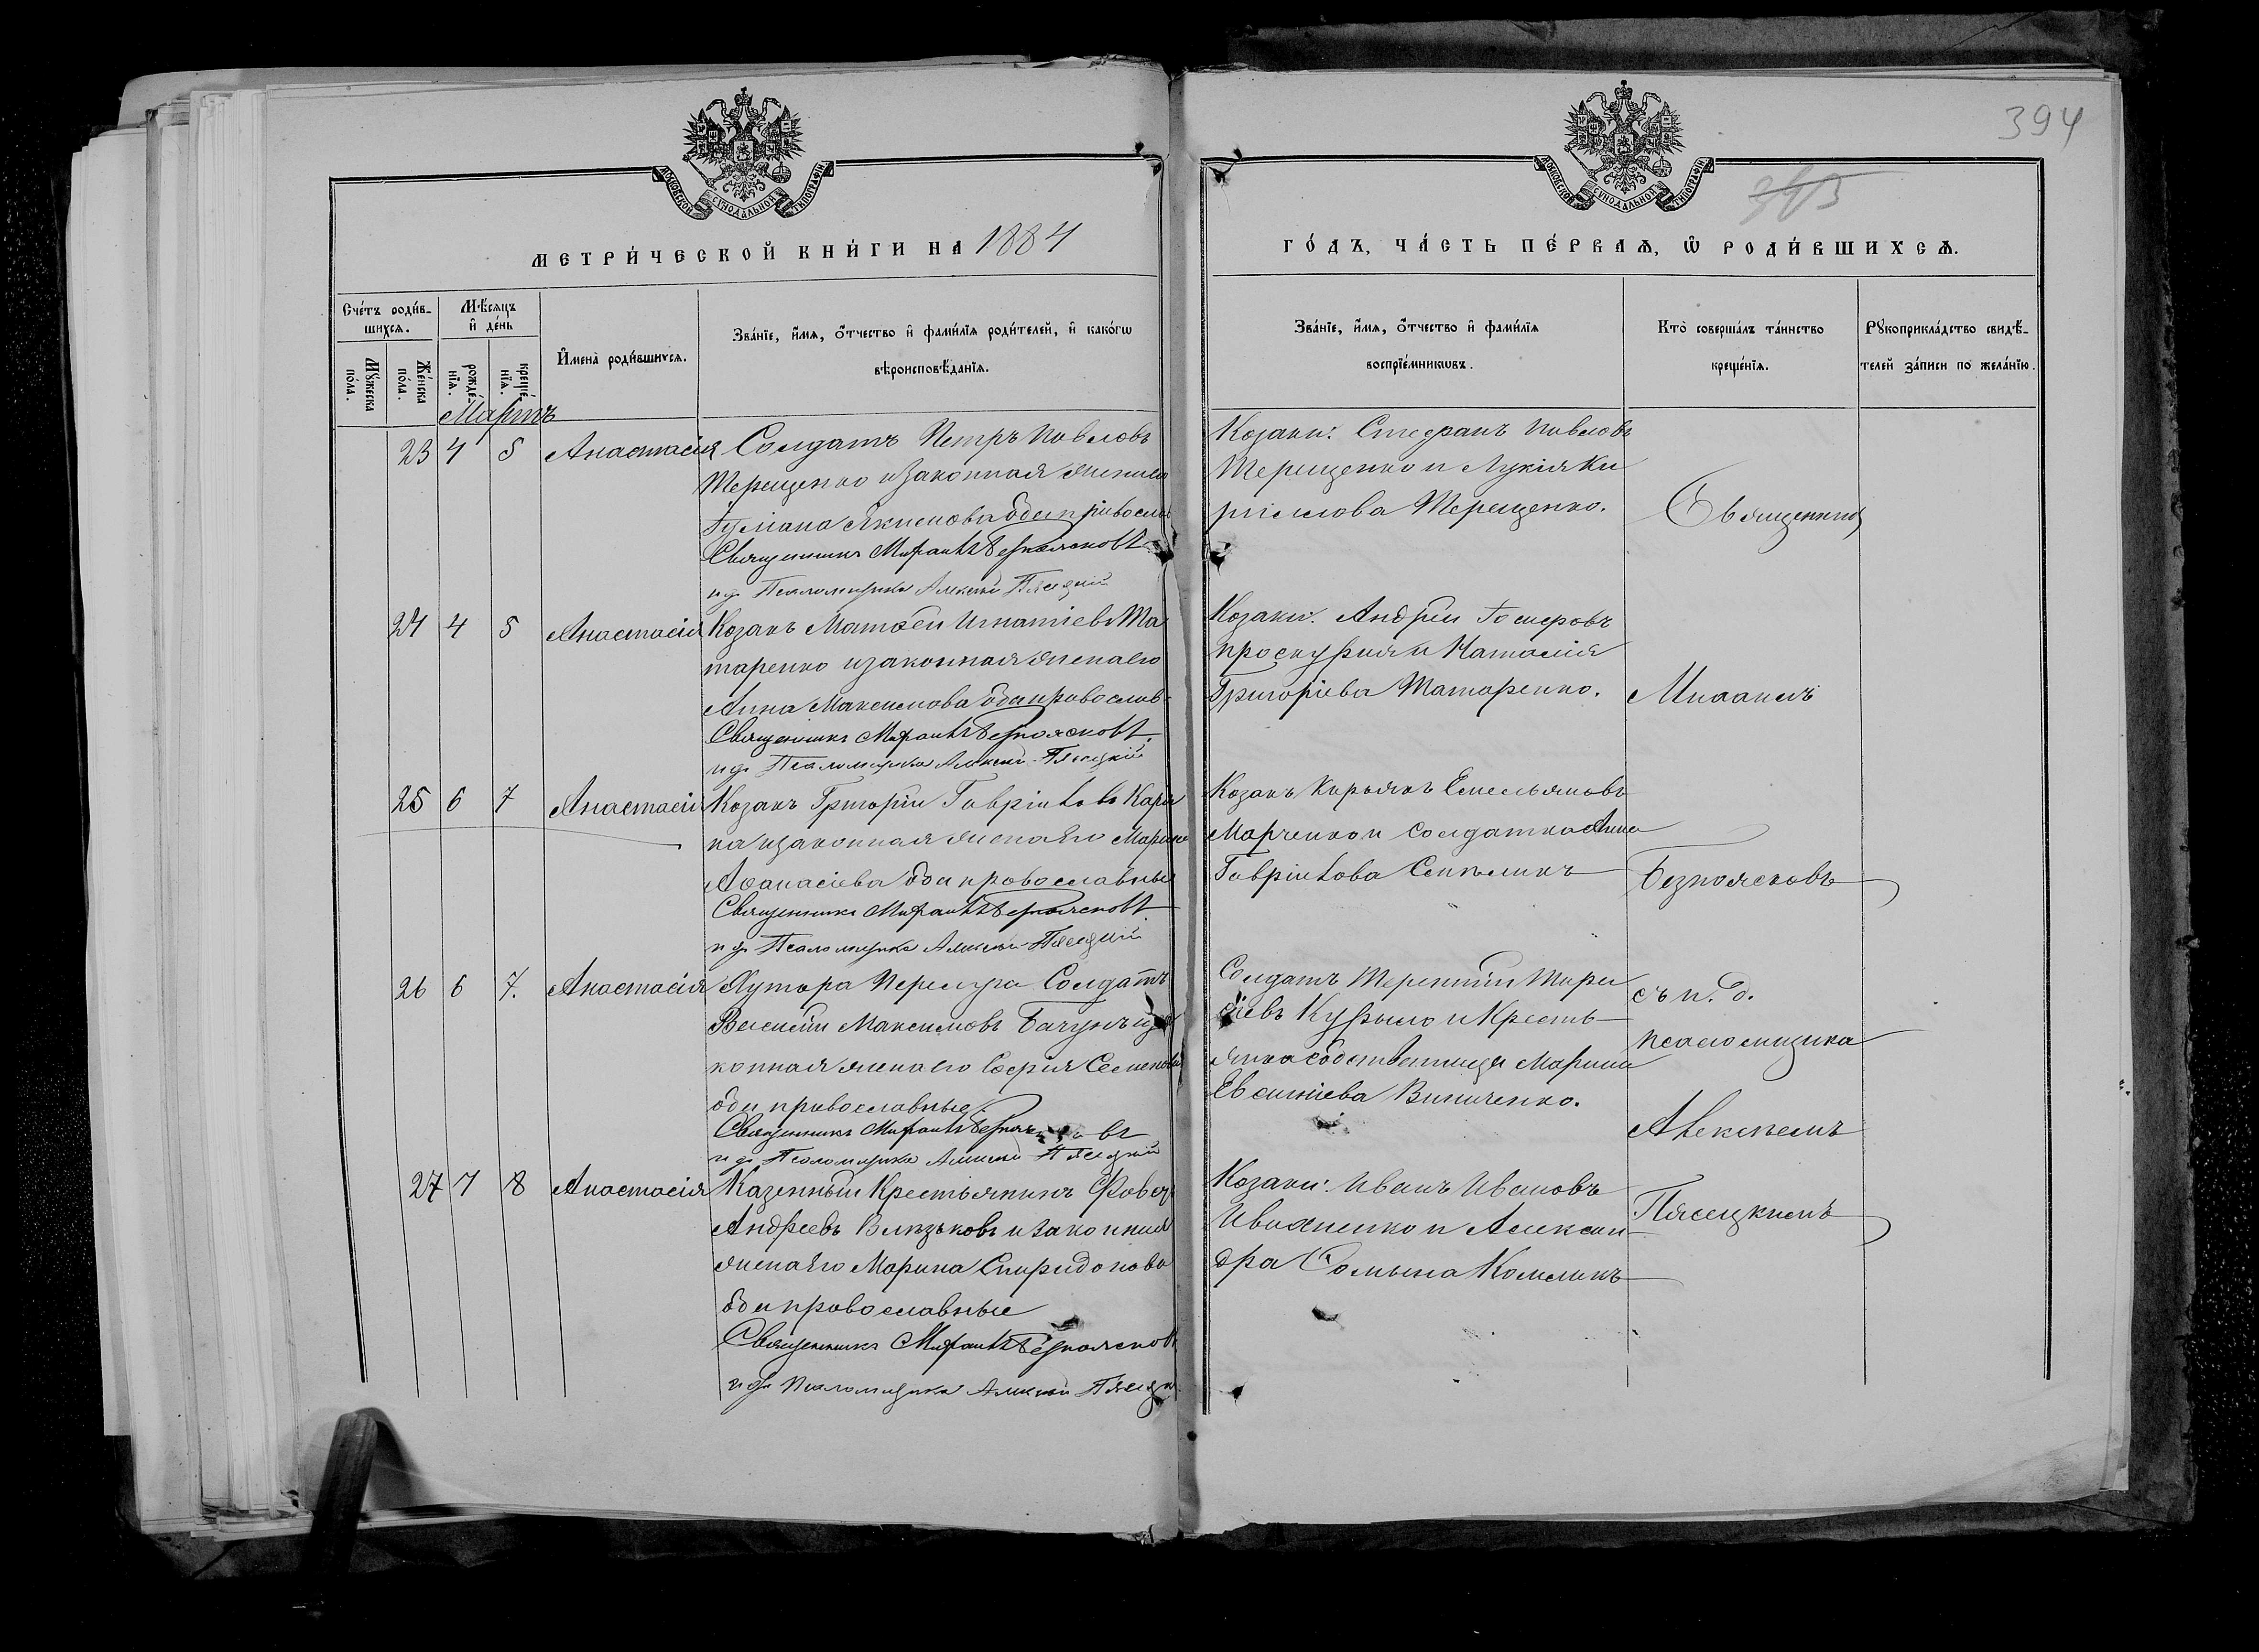 394
МОСКОВСКОЙ СѴНОДАЛЬНОЙ ТИПОГРАФІИ
МОСКОВСКОЙ СѴНОДАЛЬНОЙ ТИПОГРАФІИ
МЕТРИ́ЧЕСКОЙ КНИ́ГИ НА 1884
ГО́ДЪ, ЧА́СТЬ ПЕ́РВАѦ, Ѡ҆ РОДИ́ВШИХСѦ.
Сче́тъ роди́в-
шихсѧ.
Мꙋ́жеска
по́ла.
Же́нска
по́ла.
Мѣ́сѧцъ
и҆ де́нь
рожде́-
нїѧ.
креще́-
нїѧ.
И҆мена̀ роди́вшихсѧ.
Зва́нїе, и҆́мѧ, ѻ҆́тчество и҆ фами́лїѧ роди́телей, и҆ како́гѡ
вѣроисповѣ́данїѧ.
Зва́нїе, и҆́мѧ, ѻ҆́тчество и҆ фами́лїѧ
воспрїе́мникѡвъ.
Кто̀ соверша́лъ та́инство
креще́нїѧ.
Рꙋкоприкла́дство свидѣ́-
телей за́писи по жела́нїю.
Мартъ
23 4 5 Анастасія Солдатъ Петръ Павловъ
Терещенко и законная жена его
Якимова оба правосла
Священникъ Михаилъ Безпоясковъ
и д. Псаломщика Алексѣй Пясецкій
Козаки: Стефанъ Павловъ
Терещенко и Лукія Ки
рилова Терещенко.
Священник
24 4 5 Анастасія Козакъ Матвей Игнатіевъ Та
таренко и законная жена его
Анна Максимова оба православ-
Священникъ Михаилъ Безпоясковъ.
и д. Псаломщика Алексѣй Пясецкій
Козаки: Андрей
проскурня и Наталія
Григоріева Татаренко.
Михаилъ
25 6 7 Анастасія Козакъ Григорій Гавріиловъ
на и законная жена его Марина
Афанасіева оба православные
Священникъ Михаилъ Безпоясковъ.
и д. Псаломщика Алексѣй Пясецкій
Козакъ Кирьякъ Емельяновъ
Марченко и солдатка Анна
Гавріилова
Безпоясковъ
26 6 7. Анастасія Хутора Солдатъ
Василій Максимовъ
конная жена его Софія Семенова
оба православные.
Священникъ Михаилъ
и д. Псаломщика Алексѣй Пясецкій
Солдатъ Терентій
Курыло и Кресть-
янка собственница Марина
Евсигніева Виниченко.
съ и. д.
псаломщика
Алексѣемъ
27 7 8 Анастасія Казенный Крестьянинъ
Андреевъ и законная
жена его Марина Спиридонова
оба православные
Священникъ Михаилъ Безпоясковъ
и д. Псаломщика Алексѣй
Козаки: Иванъ Ивановъ
Ивахненко и Алексан-
дра Фомина
Пясецкимъ